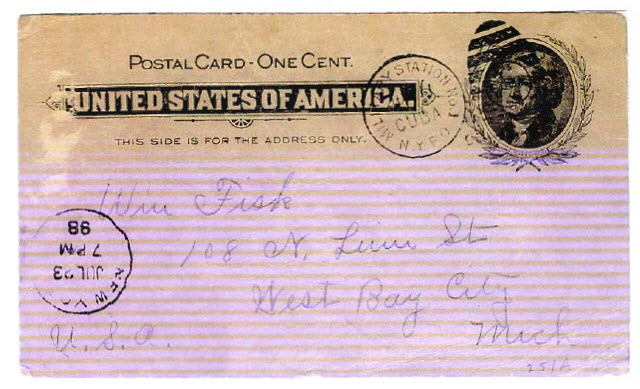 POSTAL CARD - ONE CENT.
UNITED STATES OF AMERICA.
THIS SIDE IS FOR THE ADDRESS ONLY.
MILITARY STATION No. 1
CUBA
N.Y.P.O.
Wm Fisk
108 N. Linn St
West Bay City
Mich
U.S.A.
NEW Y
JUL 23
7 PM
98
251A